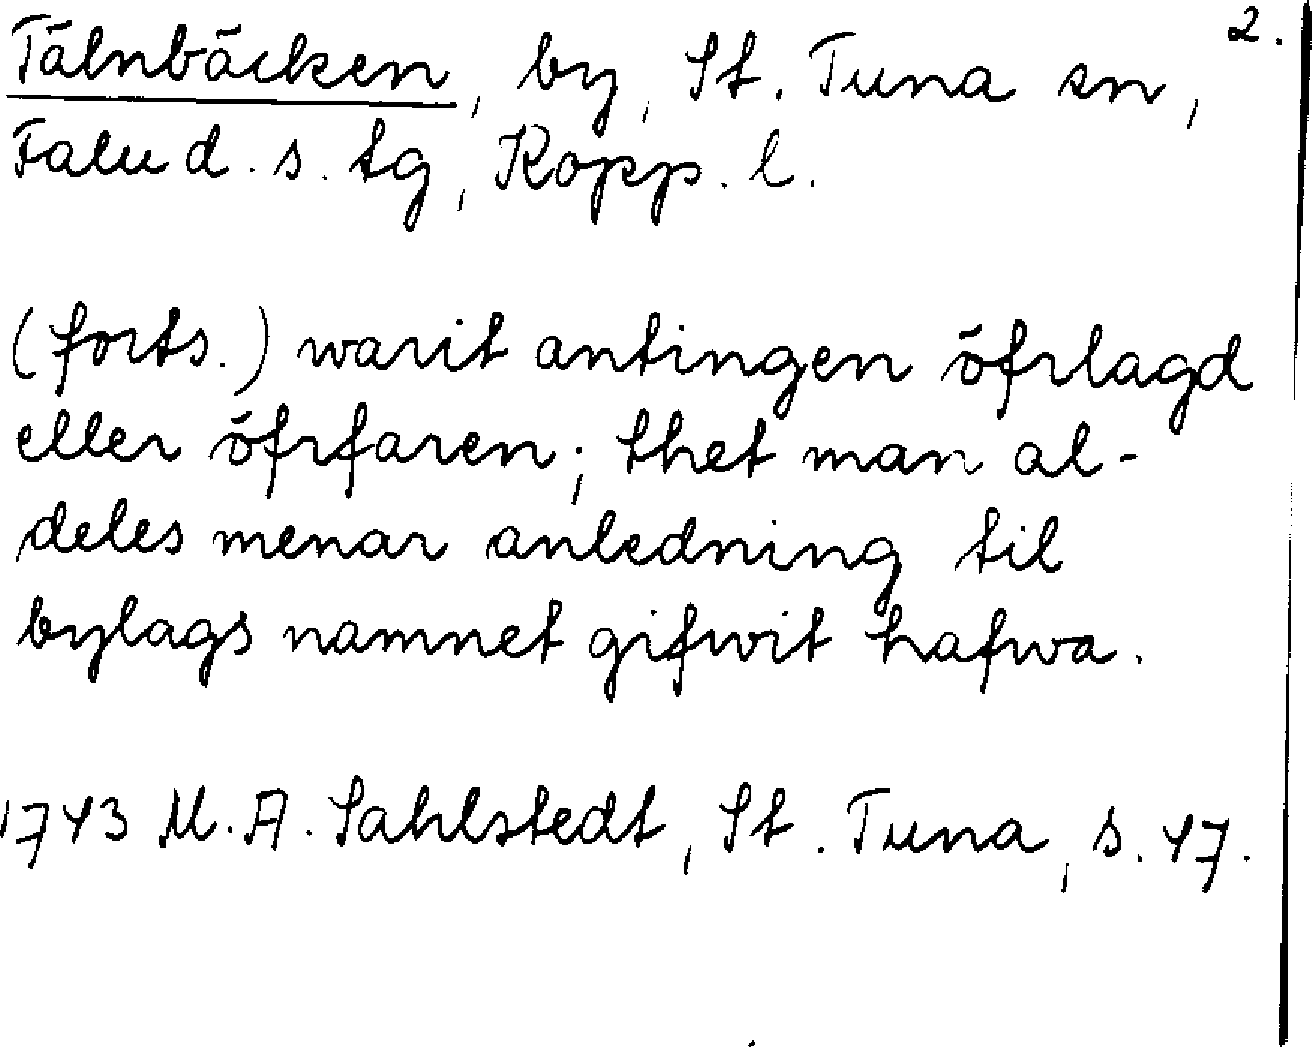 2.
Tälnbäcken, by, St. Tuna sn,
Falu d. s. tg, Kopp. l.
(forts.) warit antingen öfrlagd
eller öfrfaren; thet man al-
deles menar anledning til
bylags namnet gifwit hafwa.
1743 M. A. Sahlstedt, St. Tuna, s. 47.